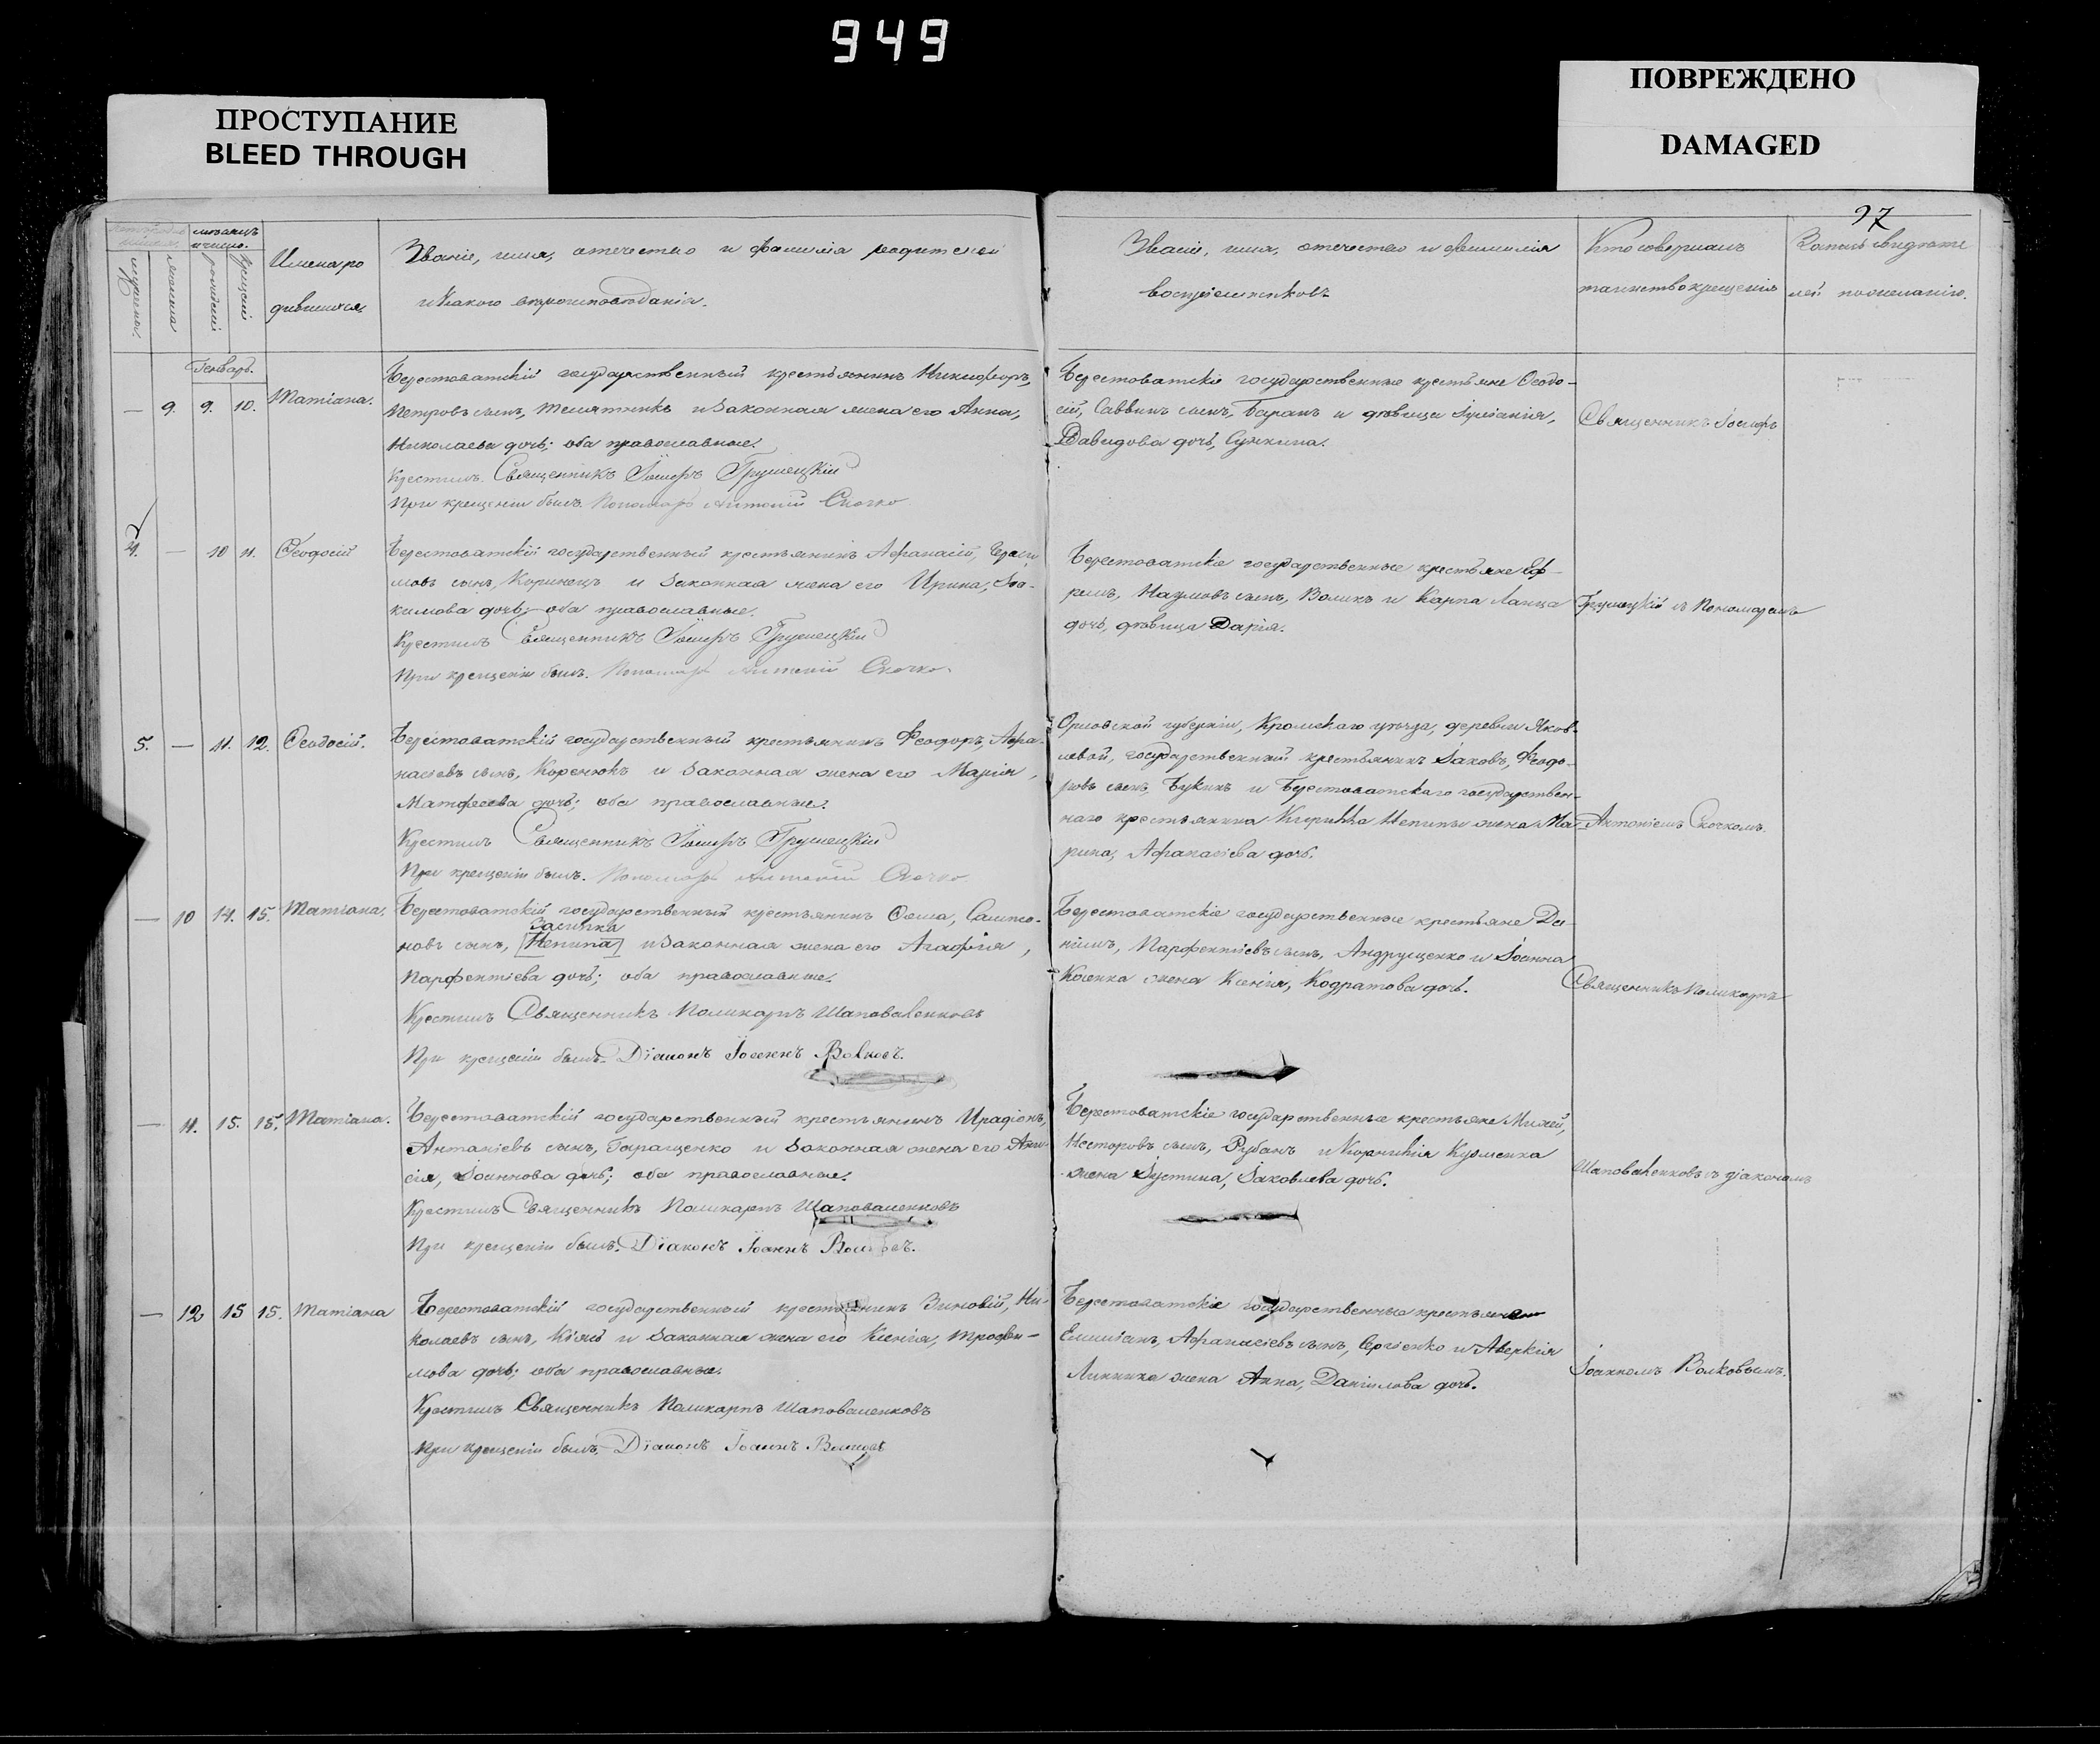 949
ПРОСТУПАНИЕ
BLEED THROUGH
ПОВРЕЖДЕНО
DAMAGED
97
мѣсяцъ
и число.
мужеска
женска
рожденія
крещенія
Имена ро
дившихся.
Званіе, имя, отечество и фамилія родителей
и какого вѣроисповѣданія.
Званіе, имя, отечество и фамилія
воспріемниковъ
Кто совершалъ
таинство крещенія
Запись свидѣте
лей по желанію.
Генварь.
— 9. 9. 10. Татіана.
Берестоватскій государственный крестьянинъ Никифоръ,
Петровъ сынъ, Телятникъ и законная жена его Анна,
Николаева дочь; оба православные.
Крестилъ Священникъ Іосифъ Грушецкій
При крещеніи былъ Пономарь Антоній Скочко
Берестоватскіе государственные крестьяне Ѳеодо-
сій, Саввинъ сынъ, Баранъ и дѣвица Іуліанія,
Давидова дочь,
Священникъ Іосифъ
4. — 10 11. Ѳеодосій
Берестоватскій государственный крестьянинъ Аѳанасій, Гераси
мовъ сынъ, Коринецъ и законная жена его Ирина, Іоа-
кимова дочь; оба православные.
Крестилъ Священникъ Іосифъ Грушецкій
При крещеніи былъ Пономарь Антоній Скочко.
Берестоватскіе государственные крестьяне Еф-
ремъ, Наумовъ сынъ, Воликъ и Карпа
дочь, дѣвица Дарія.
Грушецкій съ Пономаремъ
5. — 11. 12. Ѳеодосій.
Берестоватскій государственный крестьянинъ Ѳеодоръ, Аѳа-
насіевъ сынъ, Коренюкъ и законная жена его Марія,
Матфеева дочь; оба православные.
Крестилъ Священникъ Іосифъ Грушецкій
При крещеніи былъ. Пономарь Антоній Скочко
Орловской губерніи, Кромскаго уѣзда, деревни Яков-
левой, государственный крестьянинъ Іаковъ, Ѳеодо-
ровъ сынъ, Букинъ и Берестоватскаго государствен-
наго крестьянина Кирика Непипы жена Ма-
рина, Аѳанасіева дочь.
Антоніемъ Скочкомъ.
— 10 14. 15. Татіана.
Берестоватскій государственный крестьянинъ Ѳома, Сампсо-
Засипка
новъ сынъ, [Непипа] и законная жена его Агафія,
Парфентіева дочь; оба православные.
Крестилъ Священникъ Поликарпъ Шаповаленковъ
При крещеніи былъ Діаконъ Іоаннъ Волковъ.
Берестоватскіе государственные крестьяне Да-
ніилъ, Парфентіевъ сынъ, Андрущенко и Іоанна
Косенка жена Ксенія, Кодратова дочь.
Священникъ Поликарпъ
— 11. 15. 15. Татіана.
Берестоватскій государственный крестьянинъ Иродіонъ,
Антоніевъ сынъ, Геращенко и законная жена его Ани-
сія, Іоаннова дочь; оба православные.
Крестилъ Священникъ Поликарпъ Шаповаленковъ
При крещеніи былъ. Діаконъ Іоаннъ
Берестоватскіе государственные крестьяне
Несторовъ сынъ, Рубанъ и Корнилія Кузменка
жена Іустина, Іаковлева дочь.
Шаповаленковъ съ діакономъ
— 12 15 15. Татіана
Берестоватскій государственный крестьянинъ Зиновій, Ни-
колаевъ сынъ, Кіяс и законная жена его Ксенія, Трофи-
мова дочь; оба православные.
Крестилъ Священникъ Поликарпъ Шаповаленковъ
При крещеніи былъ, Діаконъ Іоаннъ Волковъ
Берестоватскіе государственные крестьяне
Емиліанъ, Аѳанасіевъ сынъ, Сергіенко и Аверкія
Линника жена Анна, Даніилова дочь.
Іоанномъ Волковымъ.